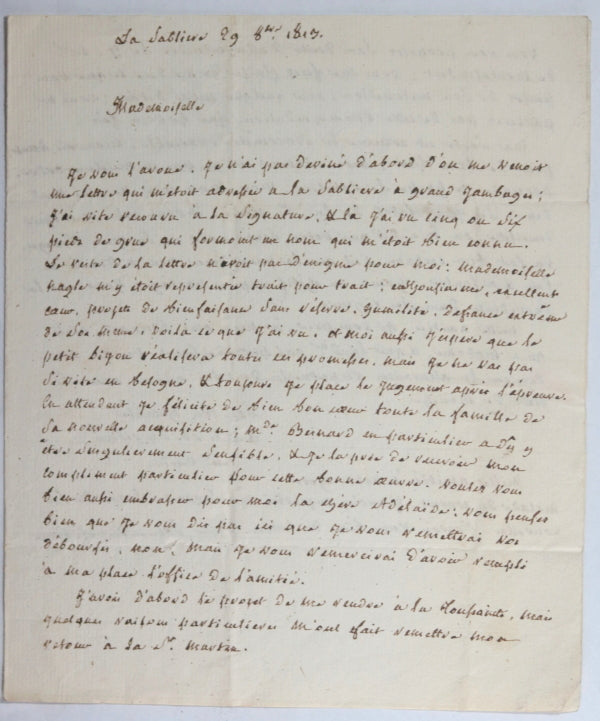 La Sabliere 29 8bre 1813.
Mademoiselle
Je vous l'avoue. Je n'ai pas deviné d'abord d'où me venoit
une lettre qui m'étoit adressée a la Sabliere à grand Jambages;
J'ai vite recouru à la Signature, & là J'ai vu cinq ou Six
pieds de grue qui formoient un nom qui m'étoit bien connu.
Le reste de la lettre n'avoit pas d'enigme pour moi: mademoiselle
n'y étoit representée trait pour trait: enthousiasme, excellent
cœur, projets de bienfaisance Sans réserve. humilité. Defiance extrême
de Soi même. voilà ce que J'ai vu. et moi aussi J'espère que le
petit bijou réalisera toutes ces promesses. mais Je ne vas pas
Si vite en besogne, & toujours Je place le Jugement après l'épreuve.
En attendant Je félicite de bien bon cœur toute la famille de
Sa nouvelle acquisition; mde. Bernard en particulier a Dû y
être Singulierement Sensible. & Je la prie de recevoir mon
compliment particulier pour cette bonne œuvre. voulez vous
bien aussi embrasser pour moi la chère Adélaïde: vous pensez
bien que Je ne vous dis pas ici que Je vous remettrai vos
déboursés. non. mais Je vous remercierai d'avoir rempli
à ma place l'office de l'amitié.
J'avois d'abord le projet de me rendre à la Toussaints, mais
quelques raisons particulieres m'ont fait remettre mon
retour à la St. Martin.